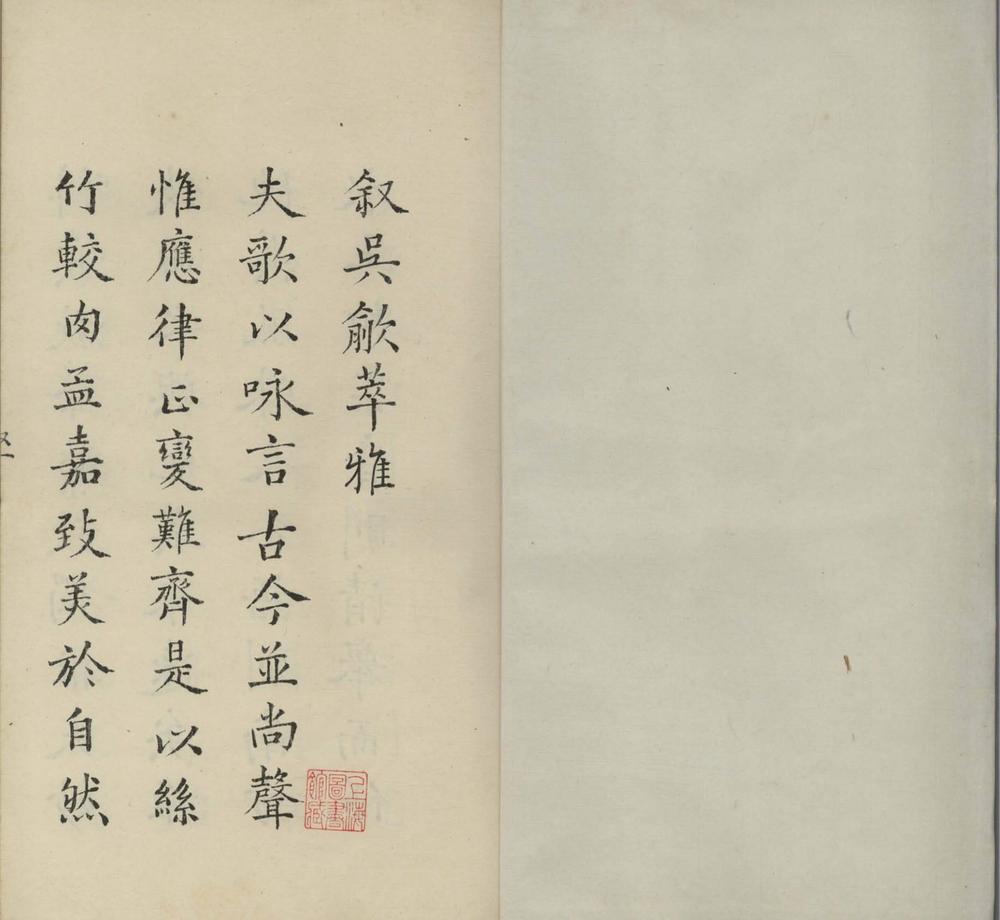 叙吳歈萃雅
夫歌以咏言古今並尚聲
惟應律正變難齊是以絲
竹較肉孟嘉致美於自然
上海圖書館藏